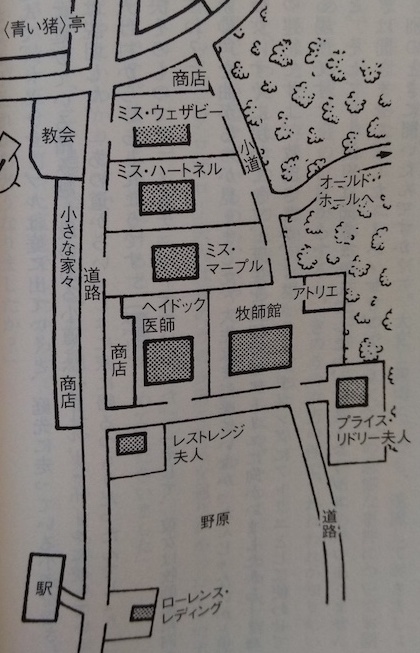 〈青い猪〉亭
商店
ミス・ウェザビー
教会
ミス・ハートネル
小道
オールド・
ホールへ
小さな家々
道路
ミス・
マープル
アトリエ
ヘイドック
医師
牧師館
商店
商店
プライス・
リドリー夫人
レストレンジ
夫人
野原
道路
駅
ローレンス・
レディング